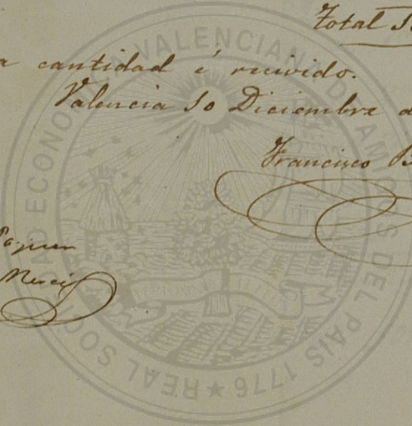 Total
a cantidad é recivido.
Valencia 30 Diciembre
Francisco
REAL SOCIEDAD ECONOMICA VALENCIANA DE AMIGOS DEL PAIS 1776